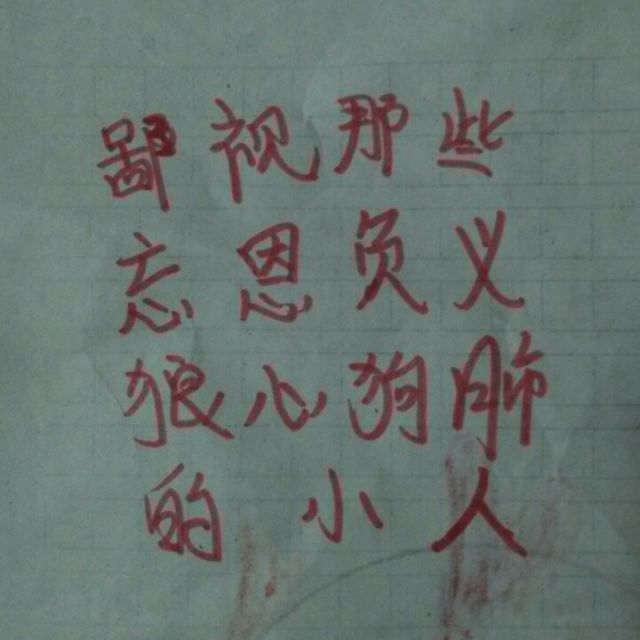 鄙视那些
忘恩负义
狼心狗肺
的小人